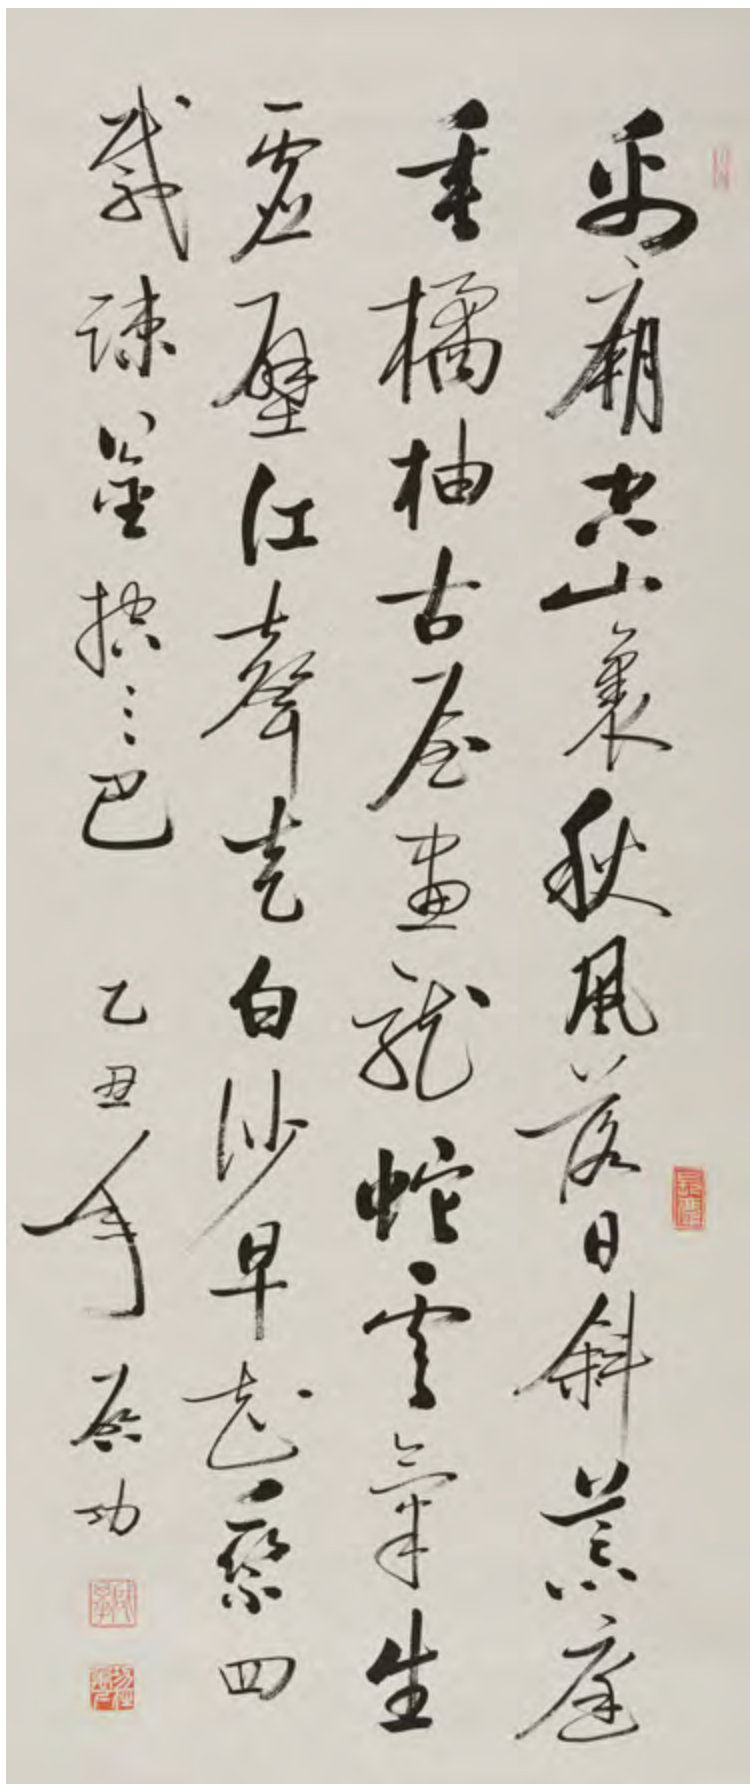 禹廟空山裏秋風落日斜荒庭
垂橘柚古屋畫龍蛇雲氣生
虛壁江聲走白沙早知乘四
載疎鑿控三巴 乙丑年 启功